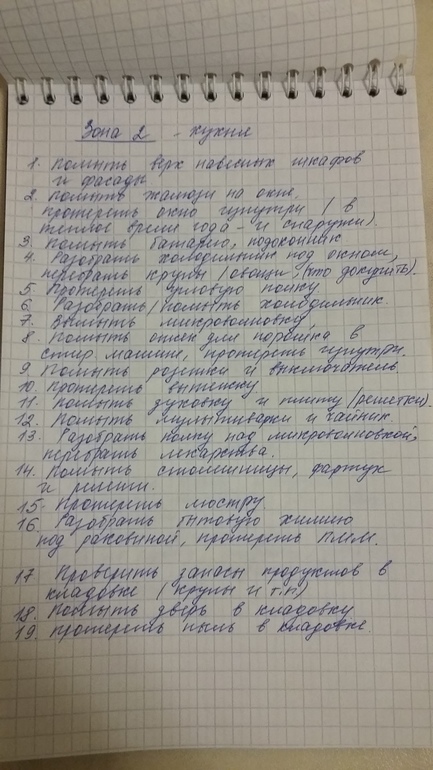 Зона 2 - кухня
1. Помыть верх навесных шкафов
и фасады
2. Помыть жалюзи на окне,
протереть окно изнутри (в
теплое время года - и снаружи).
3. Помыть батарею, подоконник
4. Разобрать холодильник под окном,
перебрать крупы (овощи, что докупить).
5. Протереть угловую полку.
6. Разобрать/помыть холодильник.
7. Вымыть микроволновку
8. Помыть отсек для порошка в
стир. машине, протереть изнутри.
9. Помыть розетки и выключатель
10. Протереть вытяжку
11. Помыть духовку и плиту (решетки).
12. Помыть мультиварки и чайник
13. Разобрать полку над микроволновкой,
перебрать лекарства.
14. Помыть столешницы, фартук
и
15. Протереть люстру
16. Разобрать бытовую химию
под раковиной, протереть ПММ.
17. Проверить запасы продуктов в
кладовке (крупы и т.п)
18. Помыть дверь в кладовку
19. протереть пыль в кладовке.